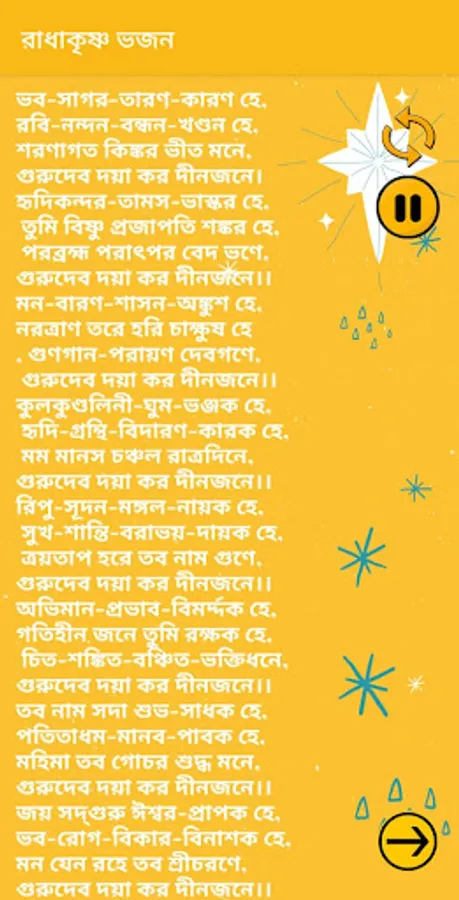 রাধাকৃষ্ণ ভজন
ভব-সাগর-তারণ-কারণ হে,
রবি-নন্দন-বন্ধন-খণ্ডন হে,
শরণাগত কিঙ্কর ভীত মনে,
গুরুদেব দয়া কর দীনজনে।
হৃদিকন্দর-তামস-ভাস্কর হে,
তুমি বিষ্ণু প্রজাপতি শঙ্কর হে,
পরব্রহ্ম পরাৎপর বেদ ভণে,
গুরুদেব দয়া কর দীনজনে।।
মন-বারণ-শাসন-অঙ্কুশ হে,
নরত্রাণ তরে হরি চাক্ষুষ হে
, গুণগান-পরায়ণ দেবগণে,
গুরুদেব দয়া কর দীনজনে।।
কুলকুণ্ডলিনী-ঘুম-ভঞ্জক হে,
হৃদি-গ্রন্থি-বিদারণ-কারক হে,
মম মানস চঞ্চল রাত্রদিনে,
গুরুদেব দয়া কর দীনজনে।।
রিপু-সূদন-মঙ্গল-নায়ক হে,
সুখ-শান্তি-বরাভয়-দায়ক হে,
ত্রয়তাপ হরে তব নাম গুণে,
গুরুদেব দয়া কর দীনজনে।।
অভিমান-প্রভাব-বিমর্দ্দক হে,
গতিহীন জনে তুমি রক্ষক হে,
চিত-শঙ্কিত-বঞ্চিত-ভক্তিধনে,
গুরুদেব দয়া কর দীনজনে।।
তব নাম সদা শুভ-সাধক হে,
পতিতাধম-মানব-পাবক হে,
মহিমা তব গোচর শুদ্ধ মনে,
গুরুদেব দয়া কর দীনজনে।।
জয় সদ্‌গুরু ঈশ্বর-প্রাপক হে,
ভব-রোগ-বিকার-বিনাশক হে,
মন যেন রহে তব শ্রীচরণে,
গুরুদেব দয়া কর দীনজনে।।